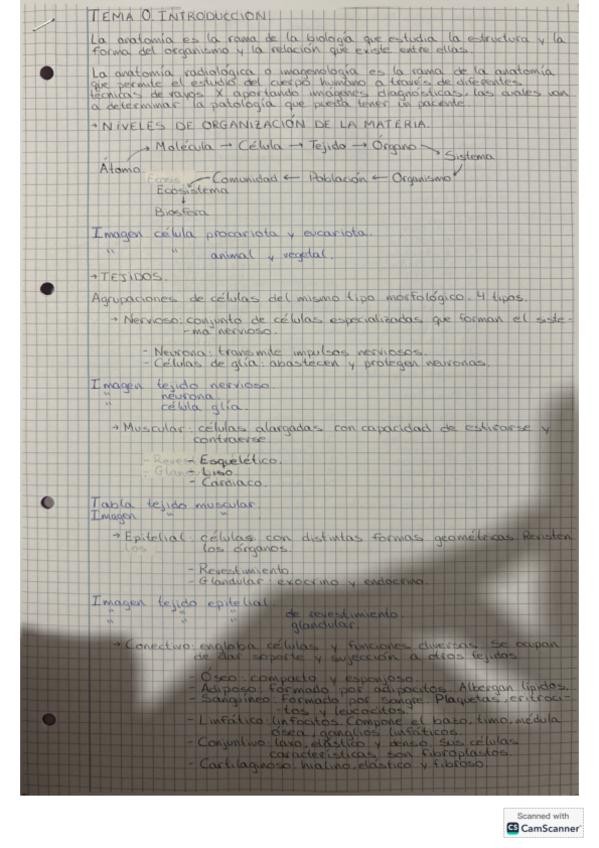 TEMA 0. INTRODUCCIÓN.
La anatomía es la rama de la biología que estudia la estructura y la
forma del organismo y la relación que existe entre ellas.
La anatomía radiológica o imagenología es la rama de la anatomía
que permite el estudio del cuerpo humano a través de diferentes
técnicas de rayos X aportando imágenes diagnósticas, las cuales van
a determinar la patología que pueda tener un paciente.
→ NIVELES DE ORGANIZACIÓN DE LA MATERIA.
Átomo → Molécula → Célula → Tejido → Órgano → Sistema
Ecosistema ← Comunidad ← Población ← Organismo
Biosfera
Imagen célula procariota y eucariota.
" " animal y vegetal.
→ TEJIDOS.
Agrupaciones de células del mismo tipo morfológico. 4 tipos.
→ Nervioso: conjunto de células especializadas que forman el siste-
-ma nervioso.
- Neurona: transmite impulsos nerviosos.
- Células de glía: abastecen y protegen neuronas.
Imagen tejido nervioso.
" neurona.
" célula glía.
→ Muscular: células alargadas con capacidad de estirarse y
contraerse
- Esquelético.
- Liso
- Cardíaco.
Tabla tejido muscular
Imagen " "
→ Epitelial: células con distintas formas geométricas. Revisten
los órganos.
- Revestimiento.
- Glandular: exocrino y endocrino.
Imagen tejido epitelial.
" " " de revestimiento.
" " " glandular.
→ Conectivo: engloba células y funciones diversas. Se ocupan
de dar soporte y sujección a otros tejidos.
- Óseo: compacto y esponjoso.
- Adiposo: formado por adipocitos. Albergan lípidos.
- Sanguíneo: formado por sangre. Plaquetas, eritroci-
-tos y leucocitos.
- Linfático: linfocitos. Compone el bazo, timo, médula
ósea, ganglios linfáticos.
- Conjuntivo: laxo, elástico y denso. Sus células
características son fibroplastos.
- Cartilaginoso: hialino, elástico y fibroso.
Scanned with
CS CamScanner